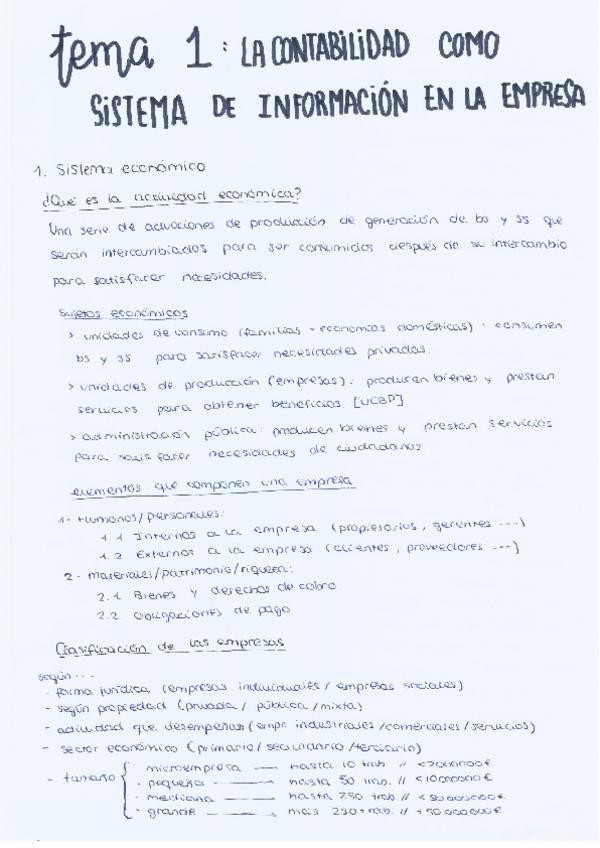 tema 1: LA CONTABILIDAD COMO
SISTEMA DE INFORMACIÓN EN LA EMPRESA
1. Sistema económico
¿Qué es la actividad económica?
Una serie de actuaciones de producción de generación de bs y ss que
serán intercambiados para ser consumidos después de su intercambio
para satisfacer necesidades.
Sujetos económicos
> unidades de consumo (familias - economías domésticas): consumen
bs y ss para satisfacer necesidades privadas.
> unidades de producción (empresas): producen bienes y prestan
servicios para obtener beneficios. [UCBP]
> administración pública: producen bienes y prestan servicios
para satisfacer necesidades de ciudadanos
elementos que componen una empresa
1- Humanos/personales:
1.1 Internos a la empresa (propietarios, gerentes ...)
1.2 Externos a la empresa (clientes, proveedores ...)
2- materiales/patrimonio/riqueza:
2.1 Bienes y derechos de cobro
2.2 Obligaciones de pago
Clasificación de las empresas
según...
- forma jurídica (empresas individuales / empresas sociales)
- según propiedad (privada / pública / mixta)
- actividad que desempeñan (empr. industriales /comerciales /servicios)
- sector económico (primario / secundario /terciario)
- tamaño
microempresa — hasta 10 trab. // <2000000€
· pequeña — hasta 50 trab. // <10000000€
· mediana — hasta 250 trab // <50000000€
· grande — más 250 trab. // +50000000€